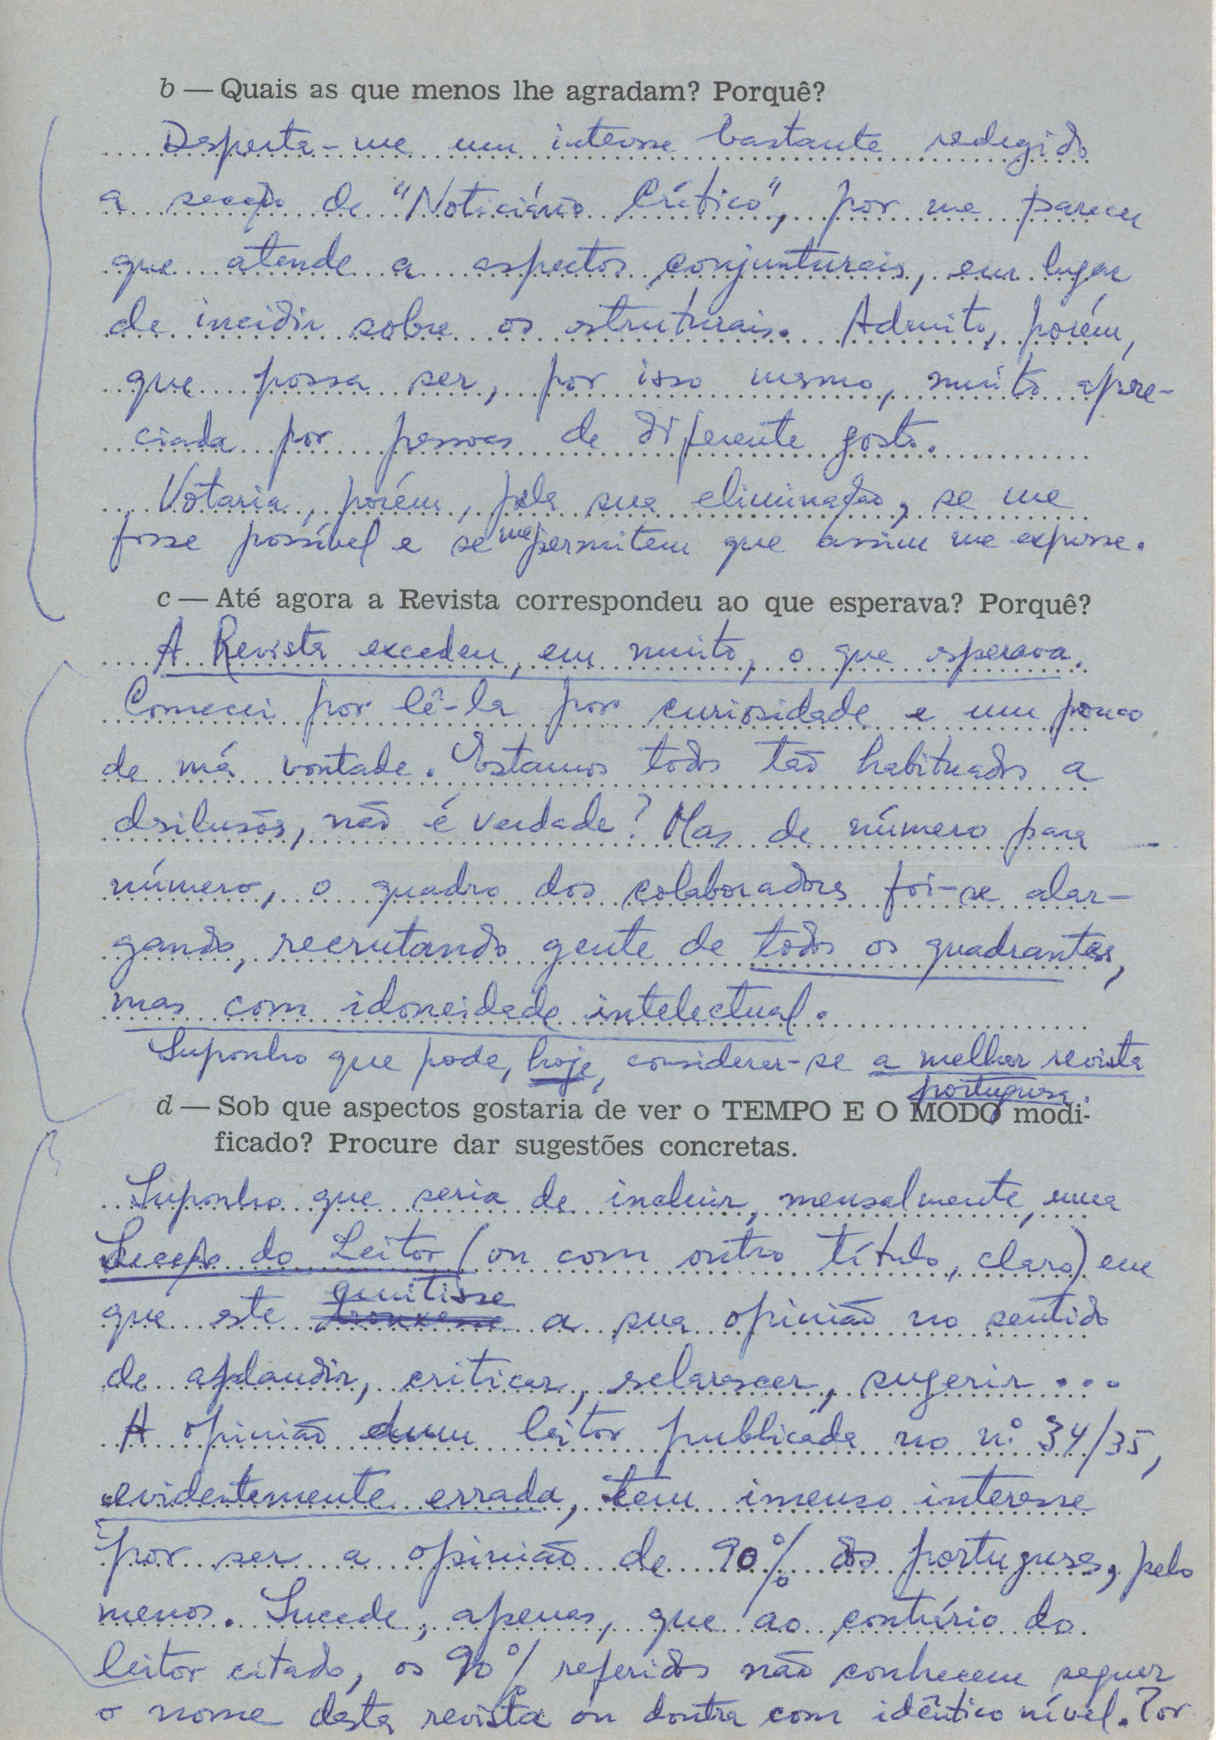 b — Quais as que menos lhe agradam? Porquê?
Desperta-me um interesse bastante redegido
a secção de "Noticiário Crítico", por me parecer
que atende a aspectos conjunturais, em lugar
de incidir sobre os estruturais. Admito, porém,
que possa ser, por isso mesmo, muito apre-
ciada por pessoas de diferente gosto.
Votaria, porém, pela sua eliminação, se me
fosse possível e se me permitem que assim me expusse.
c — Até agora a Revista correspondeu ao que esperava? Porquê?
A Revista excedeu, em muito, o que esperava.
Comecei por lê-la por curiosidade e um pouco
de má vontade. Estamos todos tão habituados a
desilusões, não é verdade? Mas de número para
número, o quadro dos colaboradores foi-se alar-
gando, recrutando gente de todos os quadrantes,
mas com idoneidade intelectual.
Suponho que pode, hoje, considerar-se a melhor revista
portuguesa.
d — Sob que aspectos gostaria de ver o TEMPO E O MODO modi-
ficado? Procure dar sugestões concretas.
Suponho que seria de incluir, mensalmente, uma
Secção do Leitor (ou com outro título, claro) em
que este emitisse a sua opinião no sentido
de aplaudir, criticar, esclarecer, sugerir...
A opinião dum leitor publicada no nº 34/35,
evidentemente errada, tem imenso interesse
por ser a opinião de 90% dos portugueses, pelo
menos. Sucede, apenas, que ao contrário do
leitor citado, os 90% referidos não conhecem sequer
o nome desta revista ou doutra com idêntico nível. Por